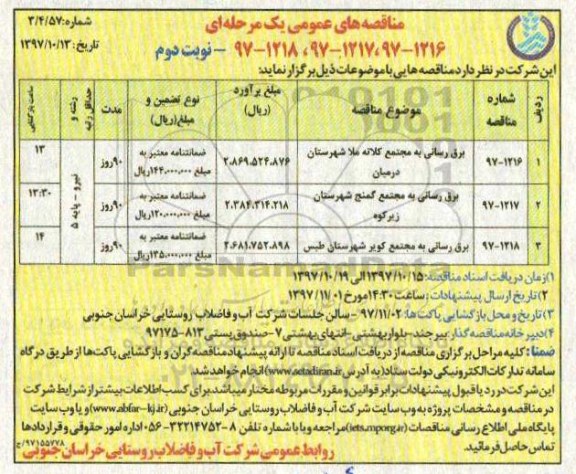 مناقصه های عمومی یک مرحله ای
شماره: ۳/۴/۵۷
۹۷-۱۲۱۶، ۹۷-۱۲۱۷، ۹۷-۱۲۱۸ - نوبت دوم
تاریخ: ۱۳۹۷/۱۰/۱۳
این شرکت در نظر دارد مناقصه هایی با موضوعات ذیل برگزار نماید:
ردیف شماره مناقصه موضوع مناقصه مبلغ برآورد (ریال) نوع تضمین و مبلغ (ریال) مدت حداقل رتبه رشته و ساعت بازگشایی
۱ ۹۷-۱۲۱۶ برق رسانی به مجتمع کلاته ملا شهرستان درمیان ۲.۸۶۹.۵۲۴.۸۷۶ ضمانتنامه معتبر به مبلغ ۱۴۴.۰۰۰.۰۰۰ریال ۹۰روز نیرو - پایه ۵ ۱۳
۲ ۹۷-۱۲۱۷ برق رسانی به مجتمع گمنج شهرستان زیرکوه ۲.۳۸۴.۳۱۴.۲۱۸ ضمانتنامه معتبر به مبلغ ۱۲۰.۰۰۰.۰۰۰ریال ۹۰روز ۱۳:۳۰
۳ ۹۷-۱۲۱۸ برق رسانی به مجتمع کویر شهرستان طبس ۲.۶۸۱.۷۵۲.۸۹۸ ضمانتنامه معتبر به مبلغ ۱۳۵.۰۰۰.۰۰۰ریال ۹۰روز ۱۴
۱) زمان دریافت اسناد مناقصه: ۱۳۹۷/۱۰/۱۵ الی ۱۳۹۷/۱۰/۱۹
۲) تاریخ ارسال پیشنهادات: ساعت ۱۴:۳۰ مورخ ۱۳۹۷/۱۱/۰۱
۳) تاریخ و محل بازگشایی پاکت ها: ۹۷/۱۱/۰۲ - سالن جلسات شرکت آب و فاضلاب روستایی خراسان جنوبی
۴) دبیرخانه مناقصه گذار: بیرجند- بلوار بهشتی- انتهای بهشتی ۷- صندوق پستی ۸۱۳-۹۷۱۷۵
ضمنا: کلیه مراحل برگزاری مناقصه از دریافت اسناد مناقصه تا ارائه پیشنهاد مناقصه گران و بازگشایی پاکت ها از طریق درگاه
سامانه تدارکات الکترونیکی دولت ستاد (به آدرس www.setadiran.ir) انجام خواهد شد.
این شرکت در رد یا قبول پیشنهادات برابر قوانین و مقررات مربوطه مختار میباشد. برای کسب اطلاعات بیشتر از شرایط شرکت
در مناقصه و مشخصات پروژه به وب سایت شرکت آب و فاضلاب روستایی خراسان جنوبی (www.abfar-kj.ir) و یا وب سایت
پایگاه ملی اطلاع رسانی مناقصات (iets.mporg.ir) مراجعه و یا با شماره تلفن ۸-۳۲۲۱۴۷۵۲-۰۵۶ اداره امور حقوقی و قراردادها
تماس حاصل فرمائید.
روابط عمومی شرکت آب و فاضلاب روستایی خراسان جنوبی
۹۷۱۵۵۷۷۸/خ
ParsNamadData